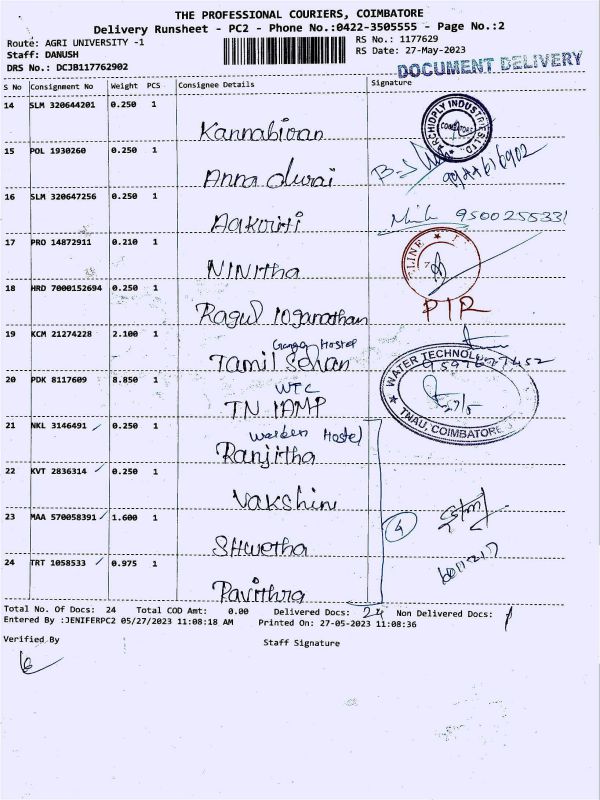 THE PROFESSIONAL COURIERS, COIMBATORE
Delivery Runsheet - PC2 - Phone No.:0422-3505555 - Page No.:2
Route: AGRI UNIVERSITY -1
RS No.: 1177629
Staff: DANUSH
RS Date: 27-May-2023
DRS No.: DCJB117762902
DOCUMENT DELIVERY
S No Consignment No Weight PCS Consignee Details Signature
14 SLM 320644201 0.250 1 Kannabiran
ARCHIDPLY INDUSTRIES LTD. COIMBATORE
15 POL 1930260 0.250 1 Anna durai
9944616902
16 SLM 320647256 0.250 1 Aakoriti
9500255331
17 PRO 14872911 0.210 1 Ninitha
18 HRD 7000152694 0.250 1 Ragul loganathan
P/R
19 KCM 21274228 2.100 1 Tamil Selvan
Ganga Hostel
20 PDK 8117609 8.850 1 TN IAMP
WTC
WATER TECHNOLOGY
27/5
TNAU, COIMBATORE
21 NKL 3146491 0.250 1 Ranjitha
Warden Hostel
22 KVT 2836314 0.250 1 Vakshini
23 MAA 570058391 1.600 1 Shwetha
4
24 TRT 1058533 0.975 1 Pavithra
Total No. Of Docs: 24 Total COD Amt: 0.00 Delivered Docs: 24 Non Delivered Docs:
Entered By :JENIFERPC2 05/27/2023 11:08:18 AM Printed On: 27-05-2023 11:08:36
Verified By
Staff Signature